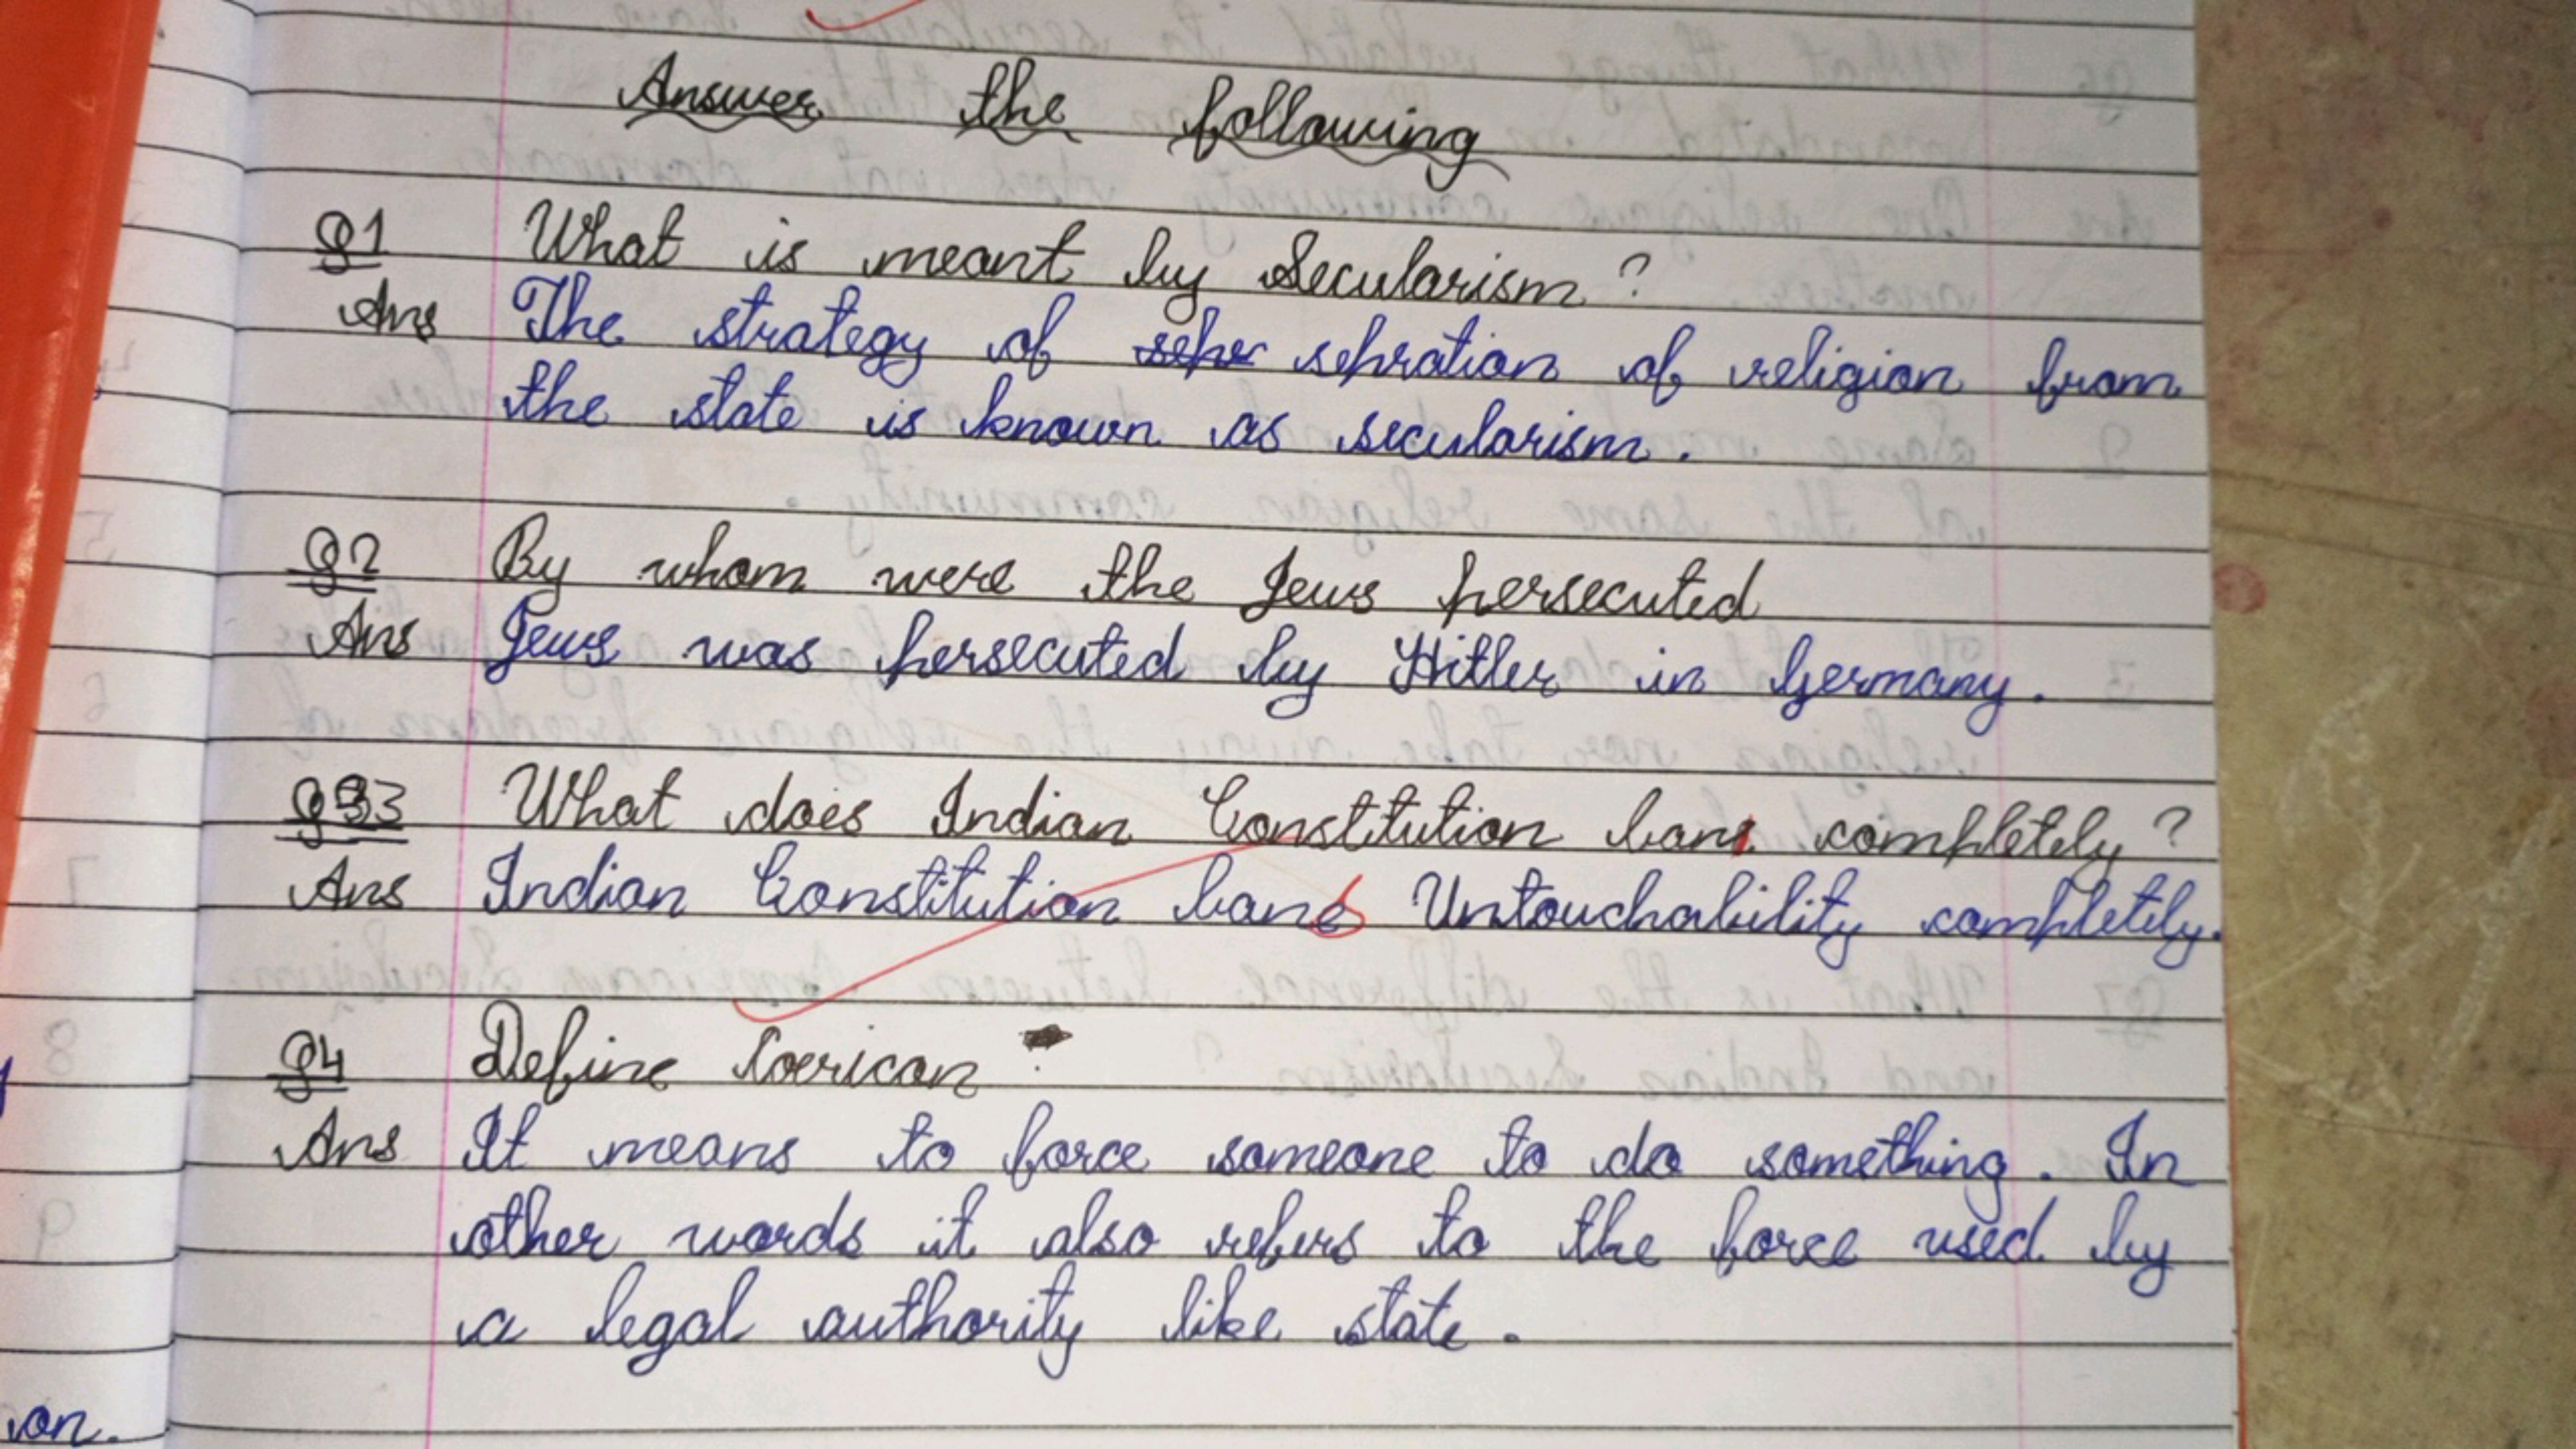 Answer the following
Q1 What is meant by Secularism?
Ans The strategy of sepr sepration of religion from
the state is known as secularism.
Q2 By whom were the Jews persecuted
Ans Jews was persecuted by Hitler in Germany.
Q3 What does Indian Constitution ban completely?
Ans Indian Constitution bans Untouchability completely.
Q4 Define Coerican
Ans It means to force someone to do something. In
other words it also refers to the force used by
a legal authority like state.
on.